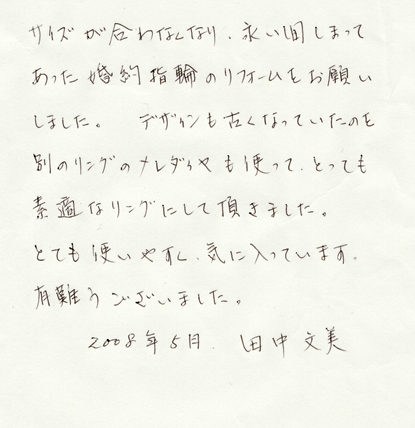 サイズが合わなくなり、永い間しまって
あった婚約指輪のリフォームをお願い
しました。 デザインも古くなっていたのを
別のリングのメレダイヤも使って、とっても
素適なリングにして頂きました。
とても使いやすく、気に入っています。
有難うございました。
2008年5月. 田中文美